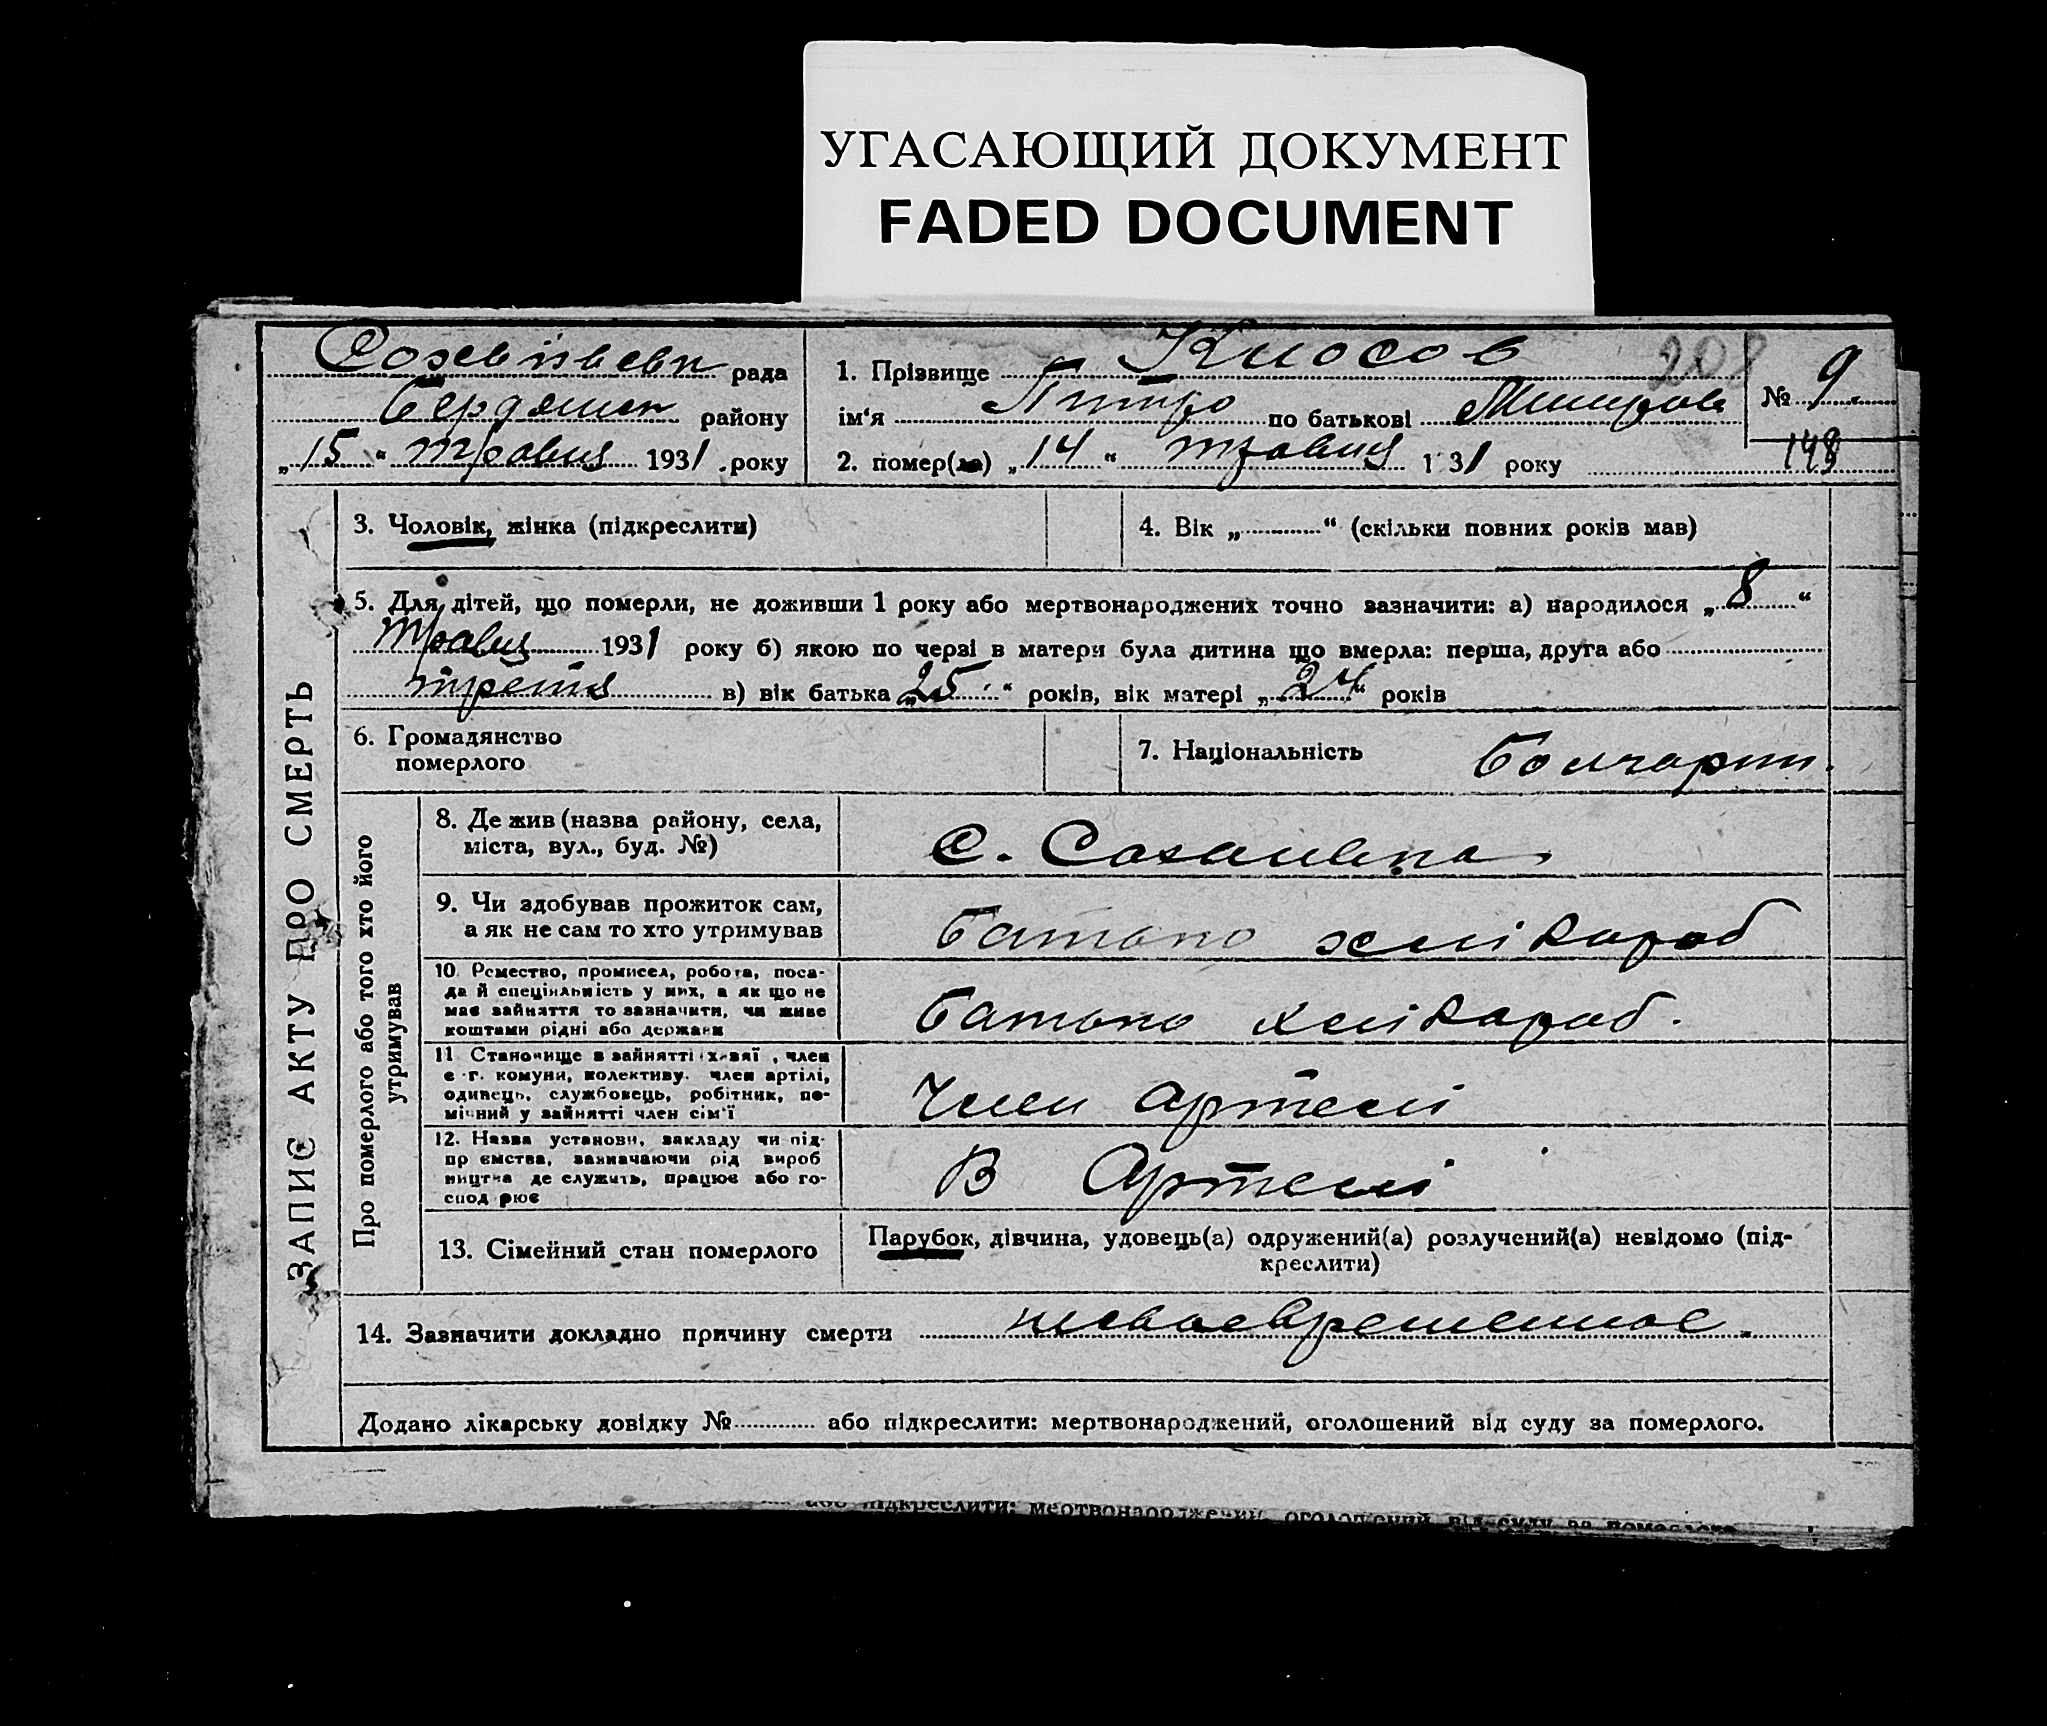 УГАСАЮЩИЙ ДОКУМЕНТ
FADED DOCUMENT
рада
району
„15“ травня 1931 року
1. Прізвище Киосов
208
№ 9.
ім‘я Питро по батькові
2. помер(ла) „14“ травня 1 31 року
148
ЗАПИС АКТУ ПРО СМЕРТЬ
3. Чоловік, жінка (підкреслити)
4. Вік „ “ (скільки повних років мав)
5. Для дітей, що померли, не доживши 1 року або мертвонароджених точно зазначити: а) народилося „8“
травня 1931 року б) якою по черзі в матери була дитина що вмерла: перша, друга або
третя в) вік батька „25“ років, вік матері „24“ років
6. Громадянство
померлого
7. Національність Болгарин.
Про померлого або того хто його
утримував
8. Де жив (назва району, села,
міста, вул., буд. №)
С.
9. Чи здобував прожиток сам,
а як не сам то хто утримував
Батько хлібароб
10. Ремество, промисел, робота, поса-
да й спеціяльність у них, а як що не
має зайняття то зазначити, чи живе
коштами рідні або держави
Батько хлібароб.
11 Становище в зайнятті , член
с.-г. комуни, колективу. член артілі,
одинець, службовець, робітник, по-
мічний у зайнятті член сім‘ї
Член артелі
12. Назва установи, закладу чи під-
пр ємства, зазначаючи рід вироб
ництва де служить, працює або го-
спод рює
В Артелі
13. Сімейний стан померлого
Парубок, дівчина, удовець(а) одружений(а) розлучений(а) невідомо (під-
креслити)
14. Зазначити докладно причину смерти несвоевременное.
Додано лікарську довідку № або підкреслити: мертвонароджений, оголошений від суду за померлого.
або підкреслити: мертвонароджений, оголошений від суду за померлого